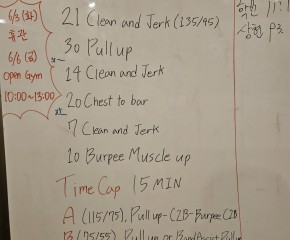 6/3 (화)
휴관
6/6 (금)
Open Gym
10:00~13:00
21 Clean and Jerk (135/95)
30 Pull up
14 Clean and Jerk
20 Chest to bar
7 Clean and Jerk
10 Burpee Muscle up
Time Cap 15 MIN
A (115/75), Pull up - C2B - Burpee C2B
B (75/55)